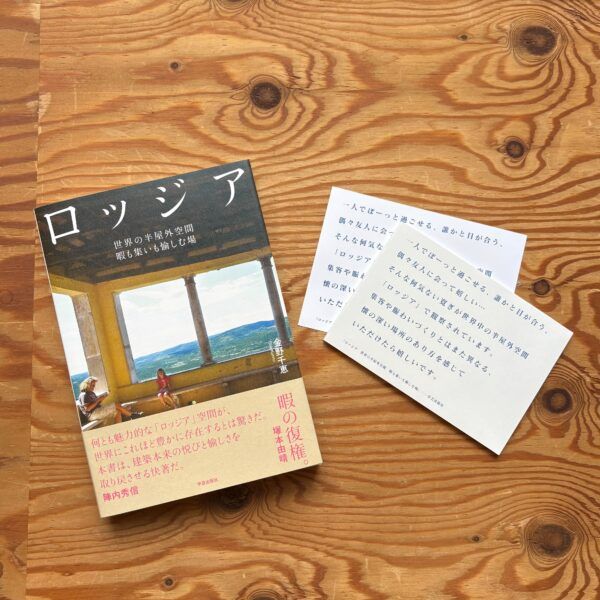 ロッジア
世界の半屋外空間
暇も集いも愉しむ場
金野千恵
何とも魅力的な「ロッジア」空間が、
世界にこれほど豊かに存在するとは驚きだ。
本書は、建築本来の悦びと愉しさを
取り戻させる快著だ。
陣内秀信
暇の復権。
塚本由晴
学芸出版社
一人でぼーっと過ごせる、誰かと目が合う、
偶々友人に会っ
そんな何気な
「ロッジ
集客や賑
懐の深い
いただけ
空間
一人でぼーっと過ごせる、誰かと目が合う、
偶々友人に会って嬉しい…
そんな何気ない寛ぎが世界中の半屋外空間
「ロッジア」で観察されています。
集客や賑わいづくりとはまた異なる、
懐の深い場所のあり方を感じて
いただけたら嬉しいです。